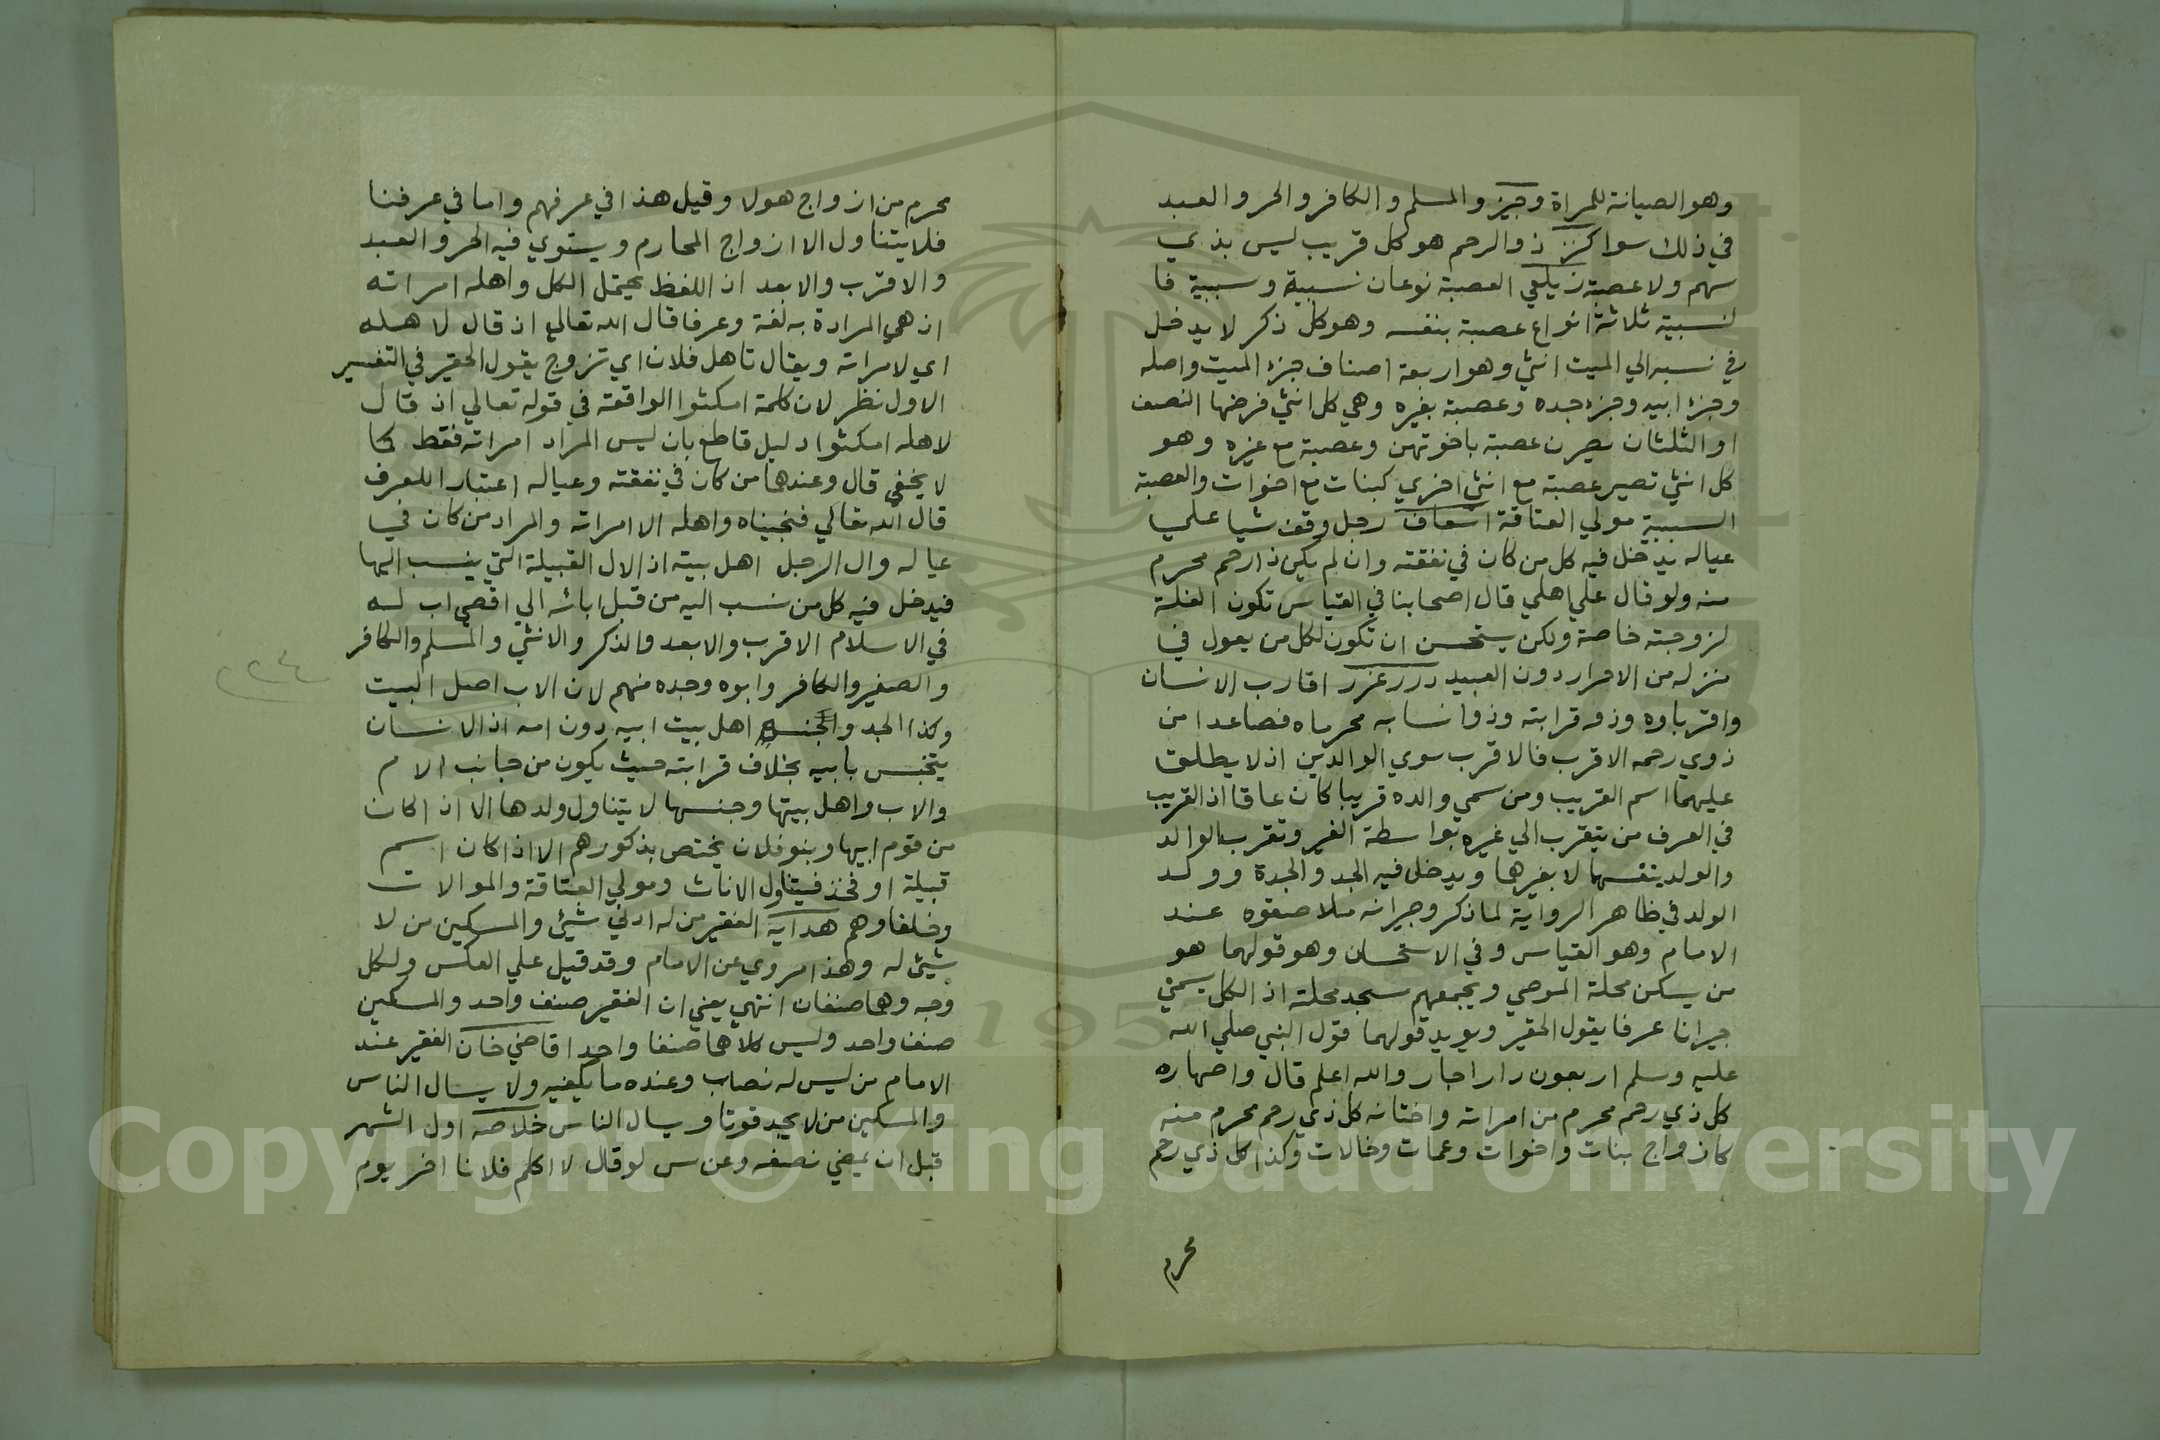 وهو الصيانة للمراة وجيز والمسلم والكافر والحر والعبد
في ذلك سوا كنز ذو الرحم هو كل قريب ليس بذي
سهم ولا عصبة زيلعي العصبة نوعان نسبية وسببية فا
لنسبية ثلاثة انواع عصبة بنفسه وهو كل ذكر لا يدخل
في نسبه الي الميت انثي وهو اربعة اصناف جزء الميت واصله
وجزء ابيه وجزء جده وعصبة بغيره وهي كل انثي فرضها النصف
او الثلثان يصرن عصبة باخوتهن وعصبة مع غيره وهو
كل انثي تصير عصبة مع انثي اخري كبنات مع اخوات والعصبة
السببية مولي العتاقة اسعاف رجل وقف شيا علي
عياله يدخل فيه كل من كان في نفقته وان لم يكن ذا رحم محرم
منه ولو قال علي اهلي قال اصحابنا في القياس تكون الغلة
لزوجته خاصة ولكن يستحسن ان تكون لكل من يعول في
منزله من الاحرار دون العبيد درر غرر اقارب الانسان
واقرباوه وذو قرابته وذو انسابه محرماه فصاعدا من
ذوي رحمه الاقرب فالاقرب سوي الوالدين اذ لا يطلق
عليهما اسم القريب ومن سمي والده قريبا كان عاقا اذ القريب
في العرف من يتقرب الي غيره بواسطة الغير وتقرب الوالد
والولد بنفسهما لا بغيرهما ويدخل فيه الجد والجدة وولد
الولد في ظاهر الرواية لما ذكر وجيرانه ملاصقوه عند
الامام وهو القياس وفي الاستحسان وهو قولهما هو
من يسكن محلة الموصي ويجمعهم مسجد محلته اذ الكل يسمي
جيرانا عرفا يقول الحقير ويويد قولهما قول النبي صلي الله
عليه وسلم اربعون دارا جار والله اعلم قال واصهاره
كل ذي رحم محرم من امراته واختانه كل ذي رحم محرم منه
كازواج بنات واخوات وعمات وخالات وكذا كل ذي رحم
محرم
محرم من ازواج هولا وقيل هذا في عرفهم واما في عرفنا
فلا يتناول الا ازواج المحارم ويستوي فيه الحر والعبد
والاقرب والابعد اذ اللفظ يحتمل الكل واهله امراته
اذ هي المرادة به لغة وعرفا قال الله تعالي اذ قال لاهله
اي لامراته ويقال تاهل فلان اي تزوج يقول الحقير في التفسير
الاول نظر لان كلمة امكثوا الواقعة في قوله تعالي اذ قال
لاهله امكثوا دليل قاطع بان ليس المراد امراته فقط كما
لا يخفي قال وعندهما من كان في نفقته وعياله اعتبارا للعرف
قال الله تعالي فنجيناه واهله الا امراته والمراد من كان في
عياله وال الرجل اهل بيته اذ الال القبيلة التي ينسب اليها
فيدخل فيه كل من نسب اليه من قبل ابائه الي اقصي اب له
في الاسلام الاقرب والابعد والذكر والانثي والمسلم والكافر
والصغير والكافر وابوه وجده منهم لان الاب اصل البيت
وكذا الجد والجنس اهل بيت ابيه دون امه اذ الانسان
يتجنس بابيه بخلاف قرابته حيث يكون من جانب الام
والاب واهل بيتها وجنسها لا يتناول ولدها الا اذا كان
من قوم ابيها وبنو فلان يختص بذكورهم الا اذا كان اسم
قبيلة او فخذ فيتناول الاناث ومولي العتاقة والموالات
وحلفاوهم هداية الفقير من له ادني شيئ والمسكين من لا
شيئ له وهذا مروي عن الامام وقد قيل علي العكس ولكل
وجه وهما صنفان انتهي يعني ان الفقير صنف واحد والمسكين
صنف واحد وليس كلاهما صنفا واحدا قاضي خان الفقير عند
الامام من ليس له نصاب وعنده ما يكفيه ولا يسال الناس
والمسكين من لا يجد قوتا ويسال الناس خلاصه اول الشهر
قبل ان يمضي نصفه وعن س لو قال لا اكلم فلانا اخر يوم
٢٢٤
Copyright © King Saud University
195